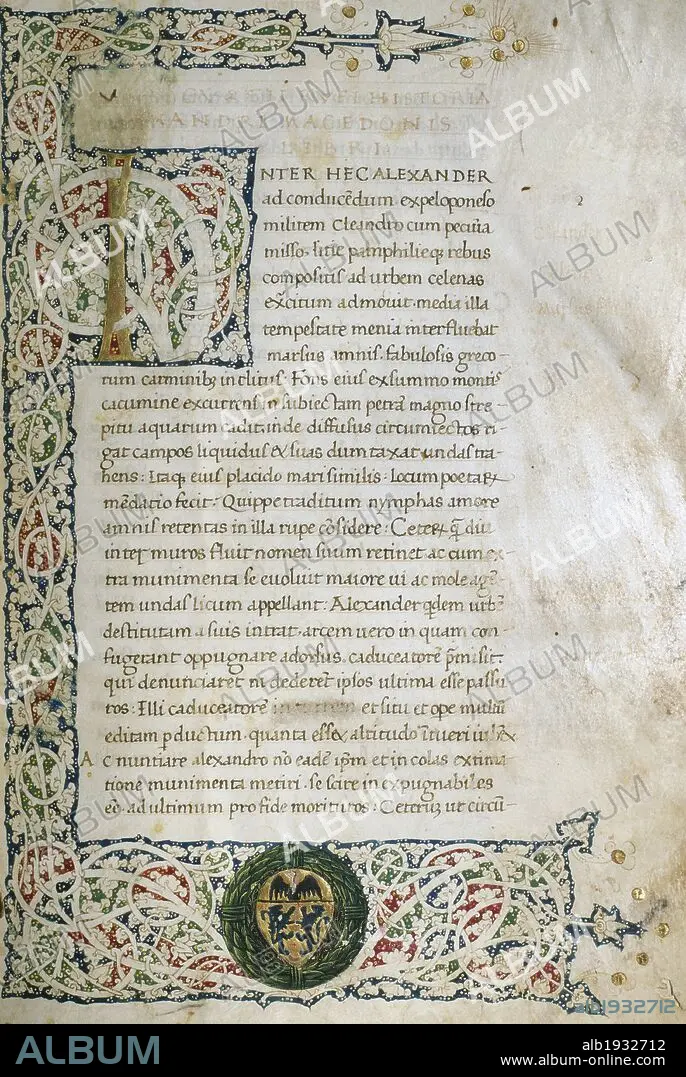 HISTORIA
MACEDONIS
LIBRI
INTER HEC ALEXANDER
ad conducēdum expeloponeso
militem Cleandro cum pecūia
misso. litie pamphilieq; rebus
compositis ad urbem celenas
exc̄itum admouit. media illa
tempestate menia interfluebat
marsus amnis. fabulosis greco-
rum carminibꝫ inclitus. Fons eius exsummo montis
cacumine excurrens in subiectam petrā magno stre-
pitu aquarum cadit. inde diffusus circumiectos ri-
gat campos liquidus & suas dumtaxat undas tra-
hens: Itaq; eius placido mari similis. locum poetaꝝ
mēdatio fecit: Quippe traditum nymphas amore
amnis retentas in illa rupe cōsidere: Ceteꝝ q̄ diu
inter muros fluit nomen suum retinet ac cum ex-
tra munimenta se evoluit maiore ui ac mole agē-
tem undas licum appellant: Alexander qdem urbē
destitutam a suis intrat. arcem vero in quam con-
fugerant oppugnare adorsus. caduceatorē p̄misit.
qui denunciaret ni dederēt ipsos ultima esse passu
ros: Illi caduceatorē in turrem et situ et ope multū
editam p ductum. quanta esset altitudo ītueri iubēt
A c nuntiare alexandro nō eadē ip̄m et incolas extima
tione munimenta metiri. se scire inexpugnabiles
eē. ad ultimum pro fide morituros: Ceterū ut circū-
2
ALBUM
alb1932712
ALBUM
alb1932712
www.album-online.com